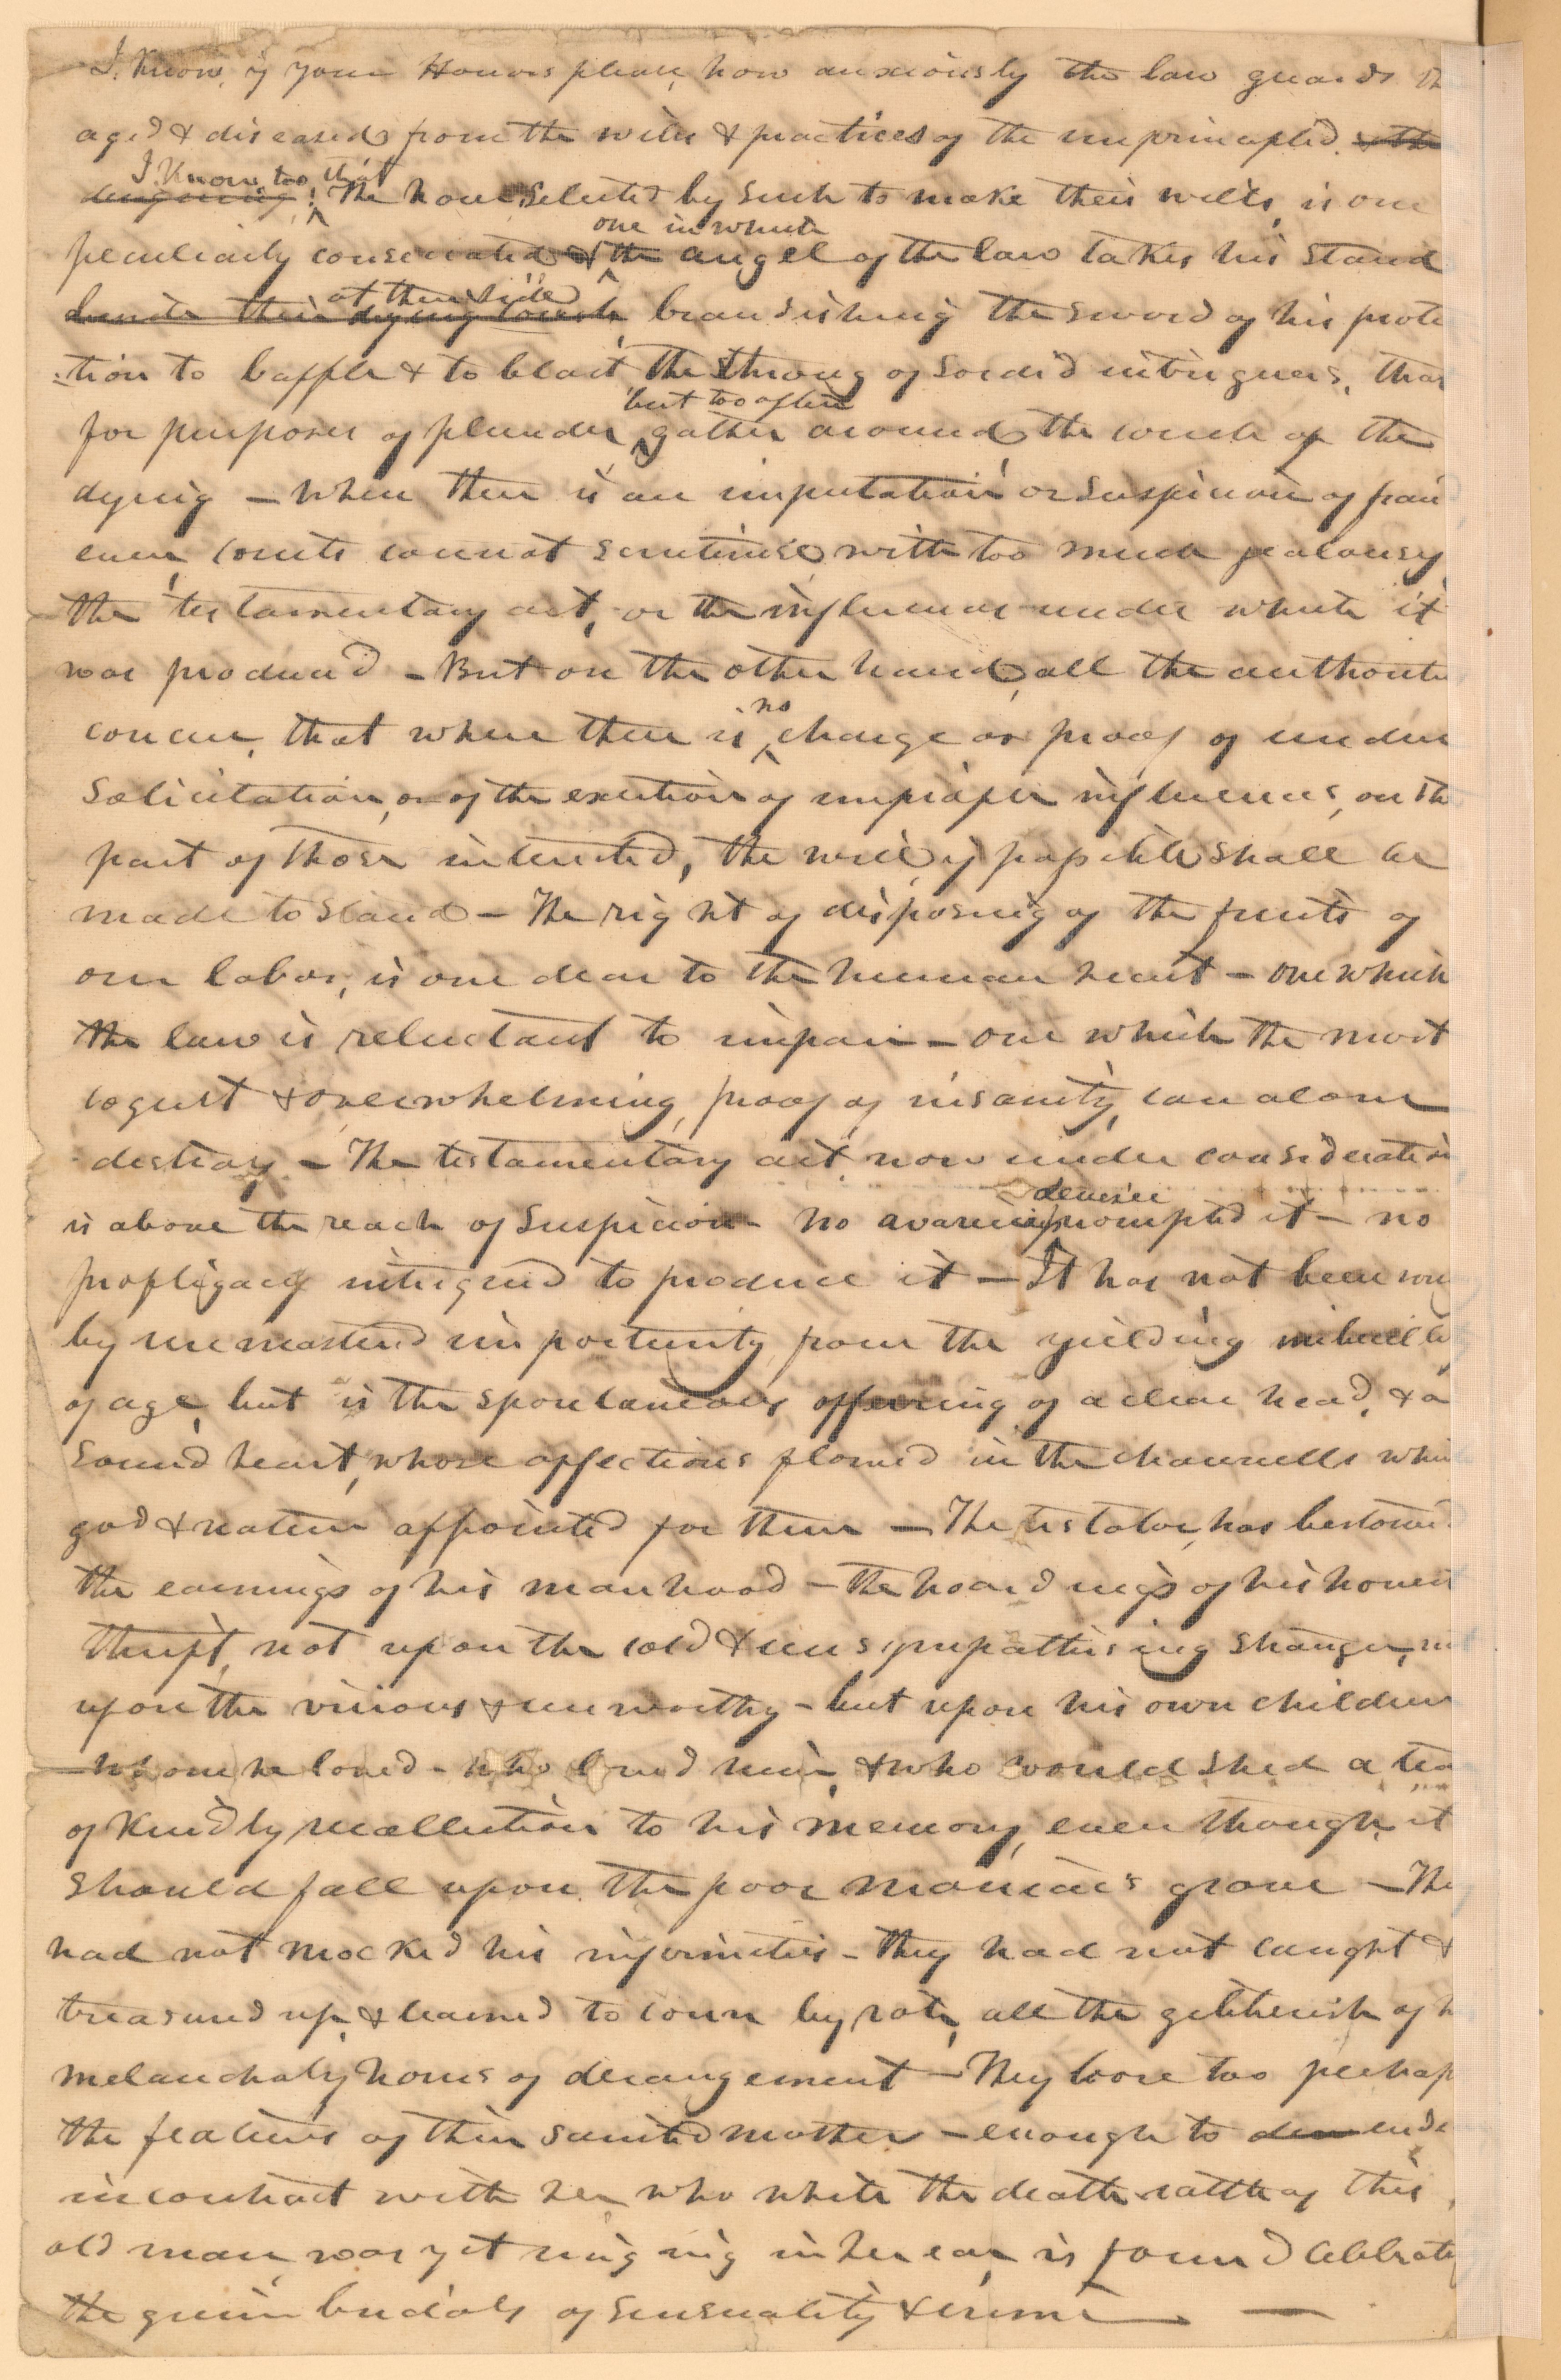 I Know, if your Honors please, how anxiously the law guards th
aged & diseased from the wiles & practices of the unprincipled. & the
designing; I Know, too, that
The hour selected by such to make their wills, is one
one in which
peculiarly consecrated & the angel of the law takes his stand
at their side
beside their dying couch, brandishing the sword of his protec
-tion to baffle & to blast, the throng of sordid intriguers, that
but too often
for purposes of plunder, gather around the couch of the
dying – When there is an imputation or suspicion of frau
even, Courts cannot scrutinise with too much jealousy
the testamentary act, or the influences under which it
was produced – But on the other hand, all the authoritie
concur, that where there is no charge or proof of undue
solicitation, or of the exertion of improper influences, on the
part of those interested, the will, if possible shall be
made to stand – The right of disposing of the fruits of
our labor, is one dear to the human heart – one which
the law is reluctant to impair – one which the most
cogent & overwhelming, proof of insanity, can alone
destroy – The testamentary act now under consideration
devisee
is above the reach of suspicion – No avaricious prompted it – no
profligacy intrigued to produce it – It has not been wru
by unmastered importunity, from the yielding imbecility
of age, but is the spontaneous offering of a clear head, & a
sound heart, whose affections flowed in the channells whi
god & nature appointed for them – The testator, has bestowed
the earnings of his manhood – the hoardings of his honest
thrift, not upon the cold & unsympathising stranger, no
upon the vicious & unworthy – but upon his own children
– whom he loved – who loved him, & who would shed a tea
of kindly recollection to his memory, even though, it
should fall upon the poor maniac's grave – The
had not mocked his infirmities – they had not caught &
treasured up, & learned to conn by rote, all the gibberish of h
melancholy hours of derangement – They bore too perhap
the features of their sainted mother – enough to
in contrast with her, who while the death rattle of this
old man, was yet ringing in her ear, is found celebrating
the grim bridals of sensuality & crime –